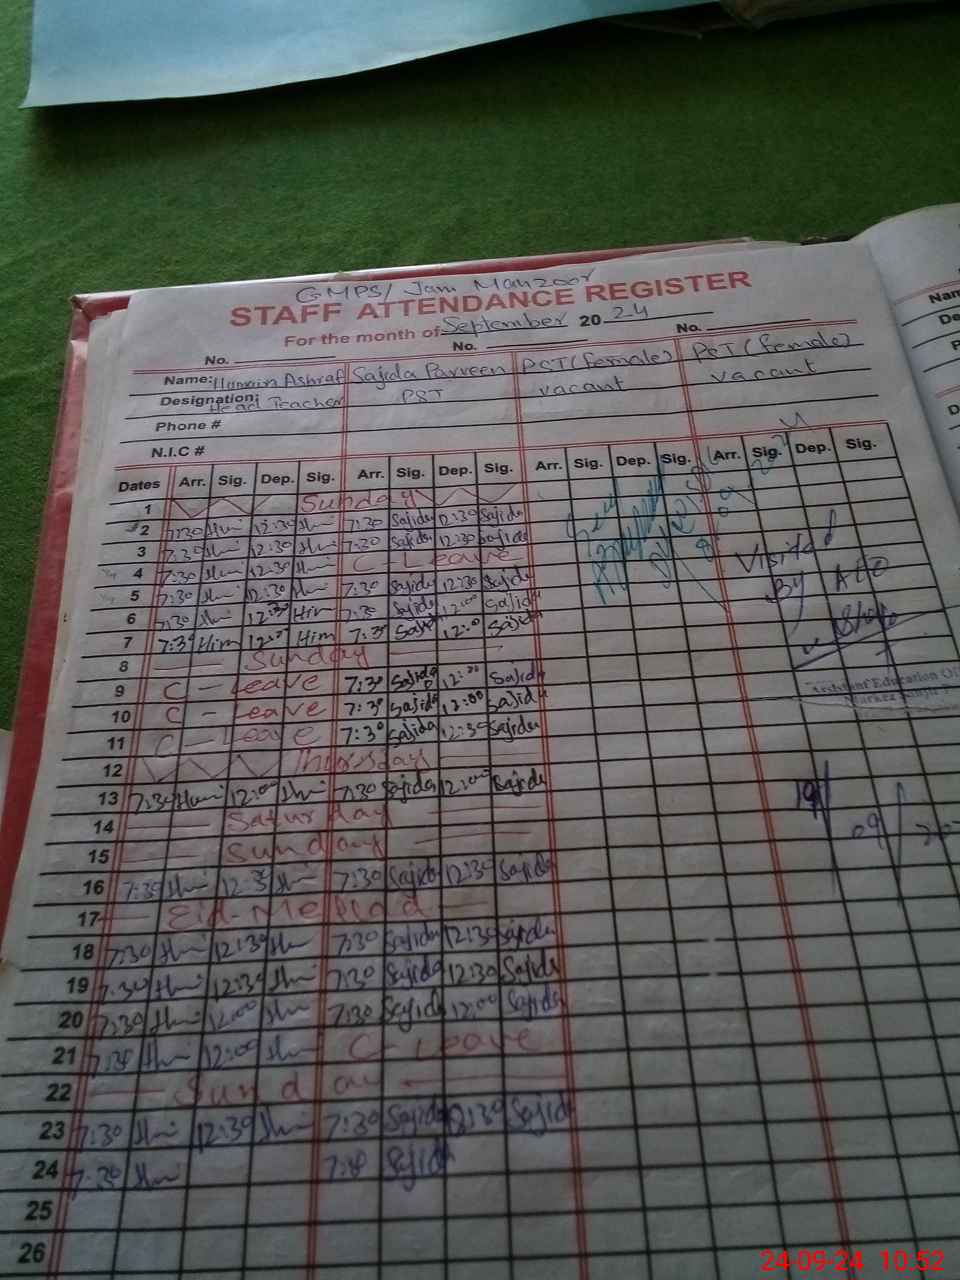 GMPS/ Jam Manzoor
STAFF ATTENDANCE REGISTER
For the month of September 20 24
No. No. No.
Name: Humaira Ashraf Sajida Parveen PST (Female) PST (Female)
Designation: Head Teacher PST vacant vacant
Phone #
N.I.C #
Dates Arr. Sig. Dep. Sig. Arr. Sig. Dep. Sig. Arr. Sig. Dep. Sig. Arr. Sig. Dep. Sig.
1 Sunday
2 7:30 12:30 7:30 Sajida 12:30 Sajida
3 7:30 12:30 7:30 Sajida 12:30 Sajida
4 7:30 12:30 C-Leave
5 7:30 12:30 7:30 Sajida 12:30 Sajida
6 7:30 12:30 7:30 Sajida 12:00 Sajida
7 7:30 12:00 7:30 Sajida 12:00 Sajida
8 Sunday
9 C-Leave 7:30 Sajida 12:30 Sajida
10 C-Leave 7:30 Sajida 12:00 Sajida
11 C-Leave 7:30 Sajida 12:30 Sajida
12 Thursday
13 7:30 12:00 7:30 Sajida 12:00 Sajida
14 Saturday
15 Sunday
16 7:30 12:30 7:30 Sajida 12:30 Sajida
17 Eid-Melad
18 7:30 12:30 7:30 Sajida 12:30 Sajida
19 7:30 12:30 7:30 Sajida 12:30 Sajida
20 7:30 12:00 7:30 Sajida 12:00 Sajida
21 7:30 12:00 C-Leave
22 Sunday
23 7:30 12:30 7:30 Sajida 12:30 Sajida
24 7:30 7:30 Sajida
25
26
Visited
By AEO
Assistant Education
Markaz
19/
09/
Nam
De
P
D
24-09-24 10:52